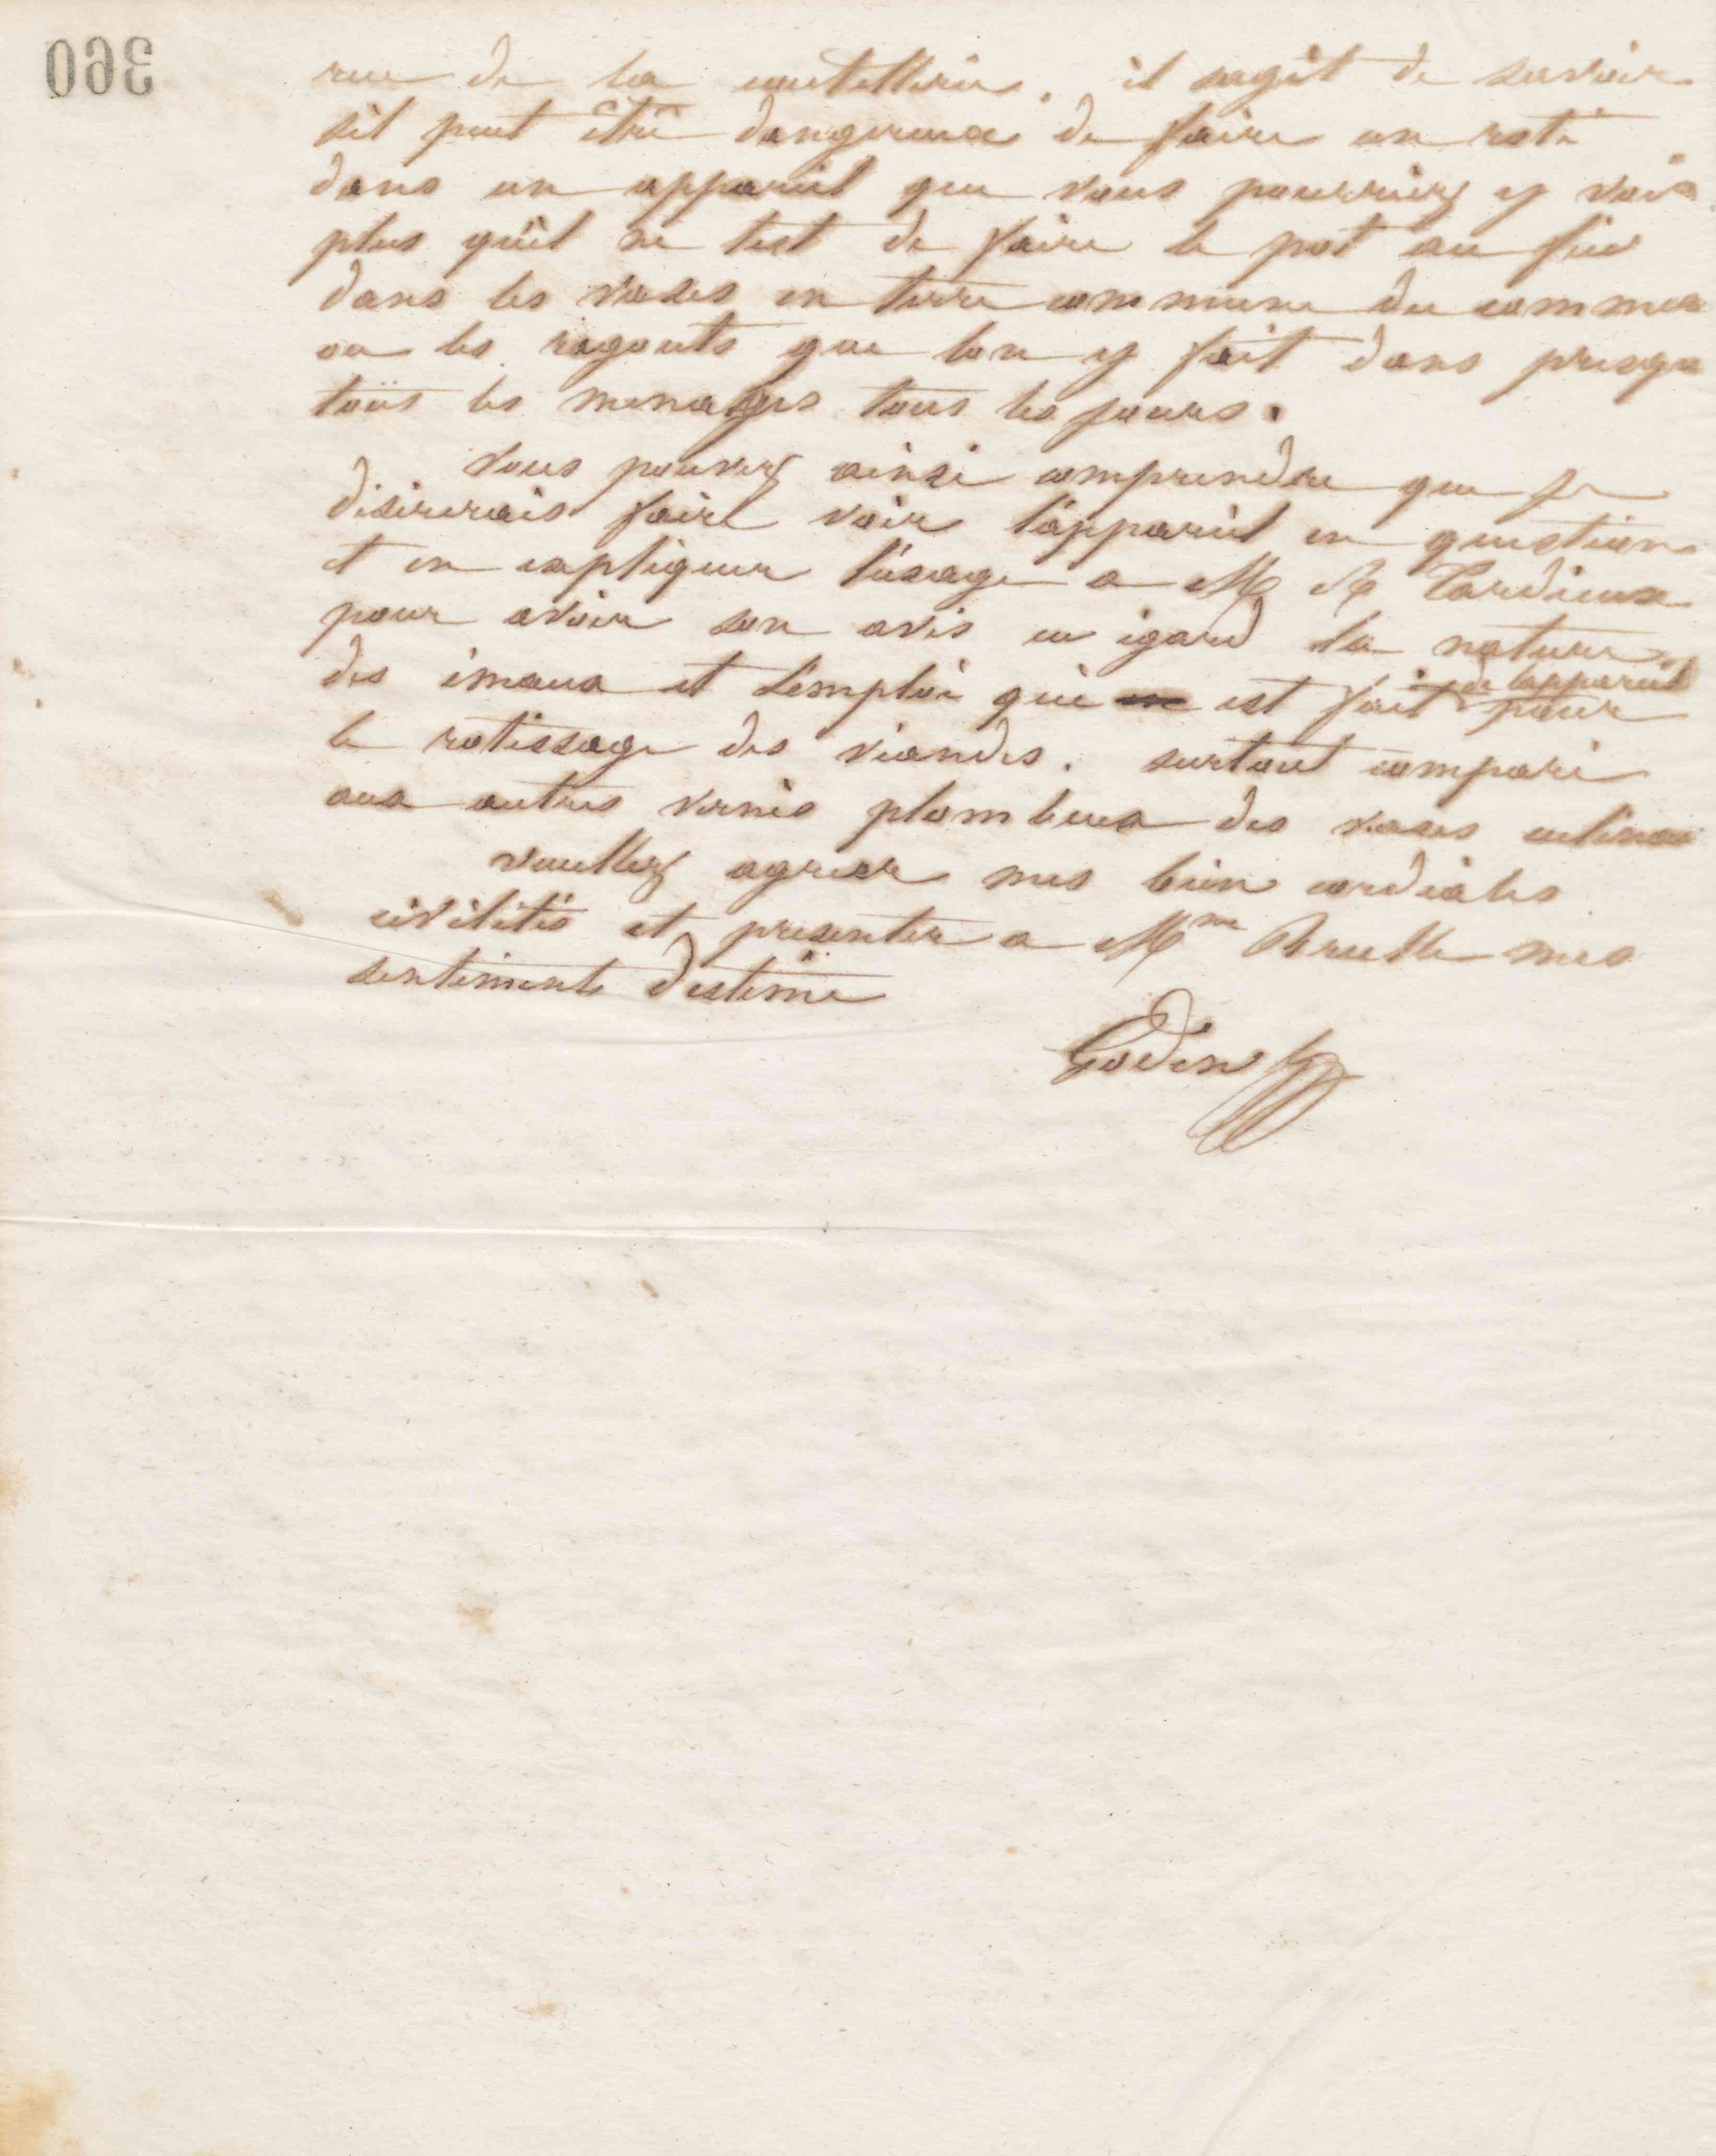 360
rue de la coutellerie. il sagit de savoir
sil peut être dangereux de faire un roti
dans un appareil que vous pourriez y voir
plus quil ne lest de faire le pot au feu
dans les vases en terre commune du commerce
ou les ragouts que lon y fait dans presque
tous les menages tous les jours.
Vous pouvez ainsi comprendre que je
desirerais faire voir lappareil en question
et en expliquer lusage a M A Tardieux
pour avoir son avis eu egard la nature
de lappareil
des emaux et lemploi qui est fait pour
le rotissage des viandes. surtout comparé
aux autres vernis plombeux des vases
veuillez agreer mes bien cordiales
civilités et presenter a Mme Brulle mes
sentiments destime
Godin